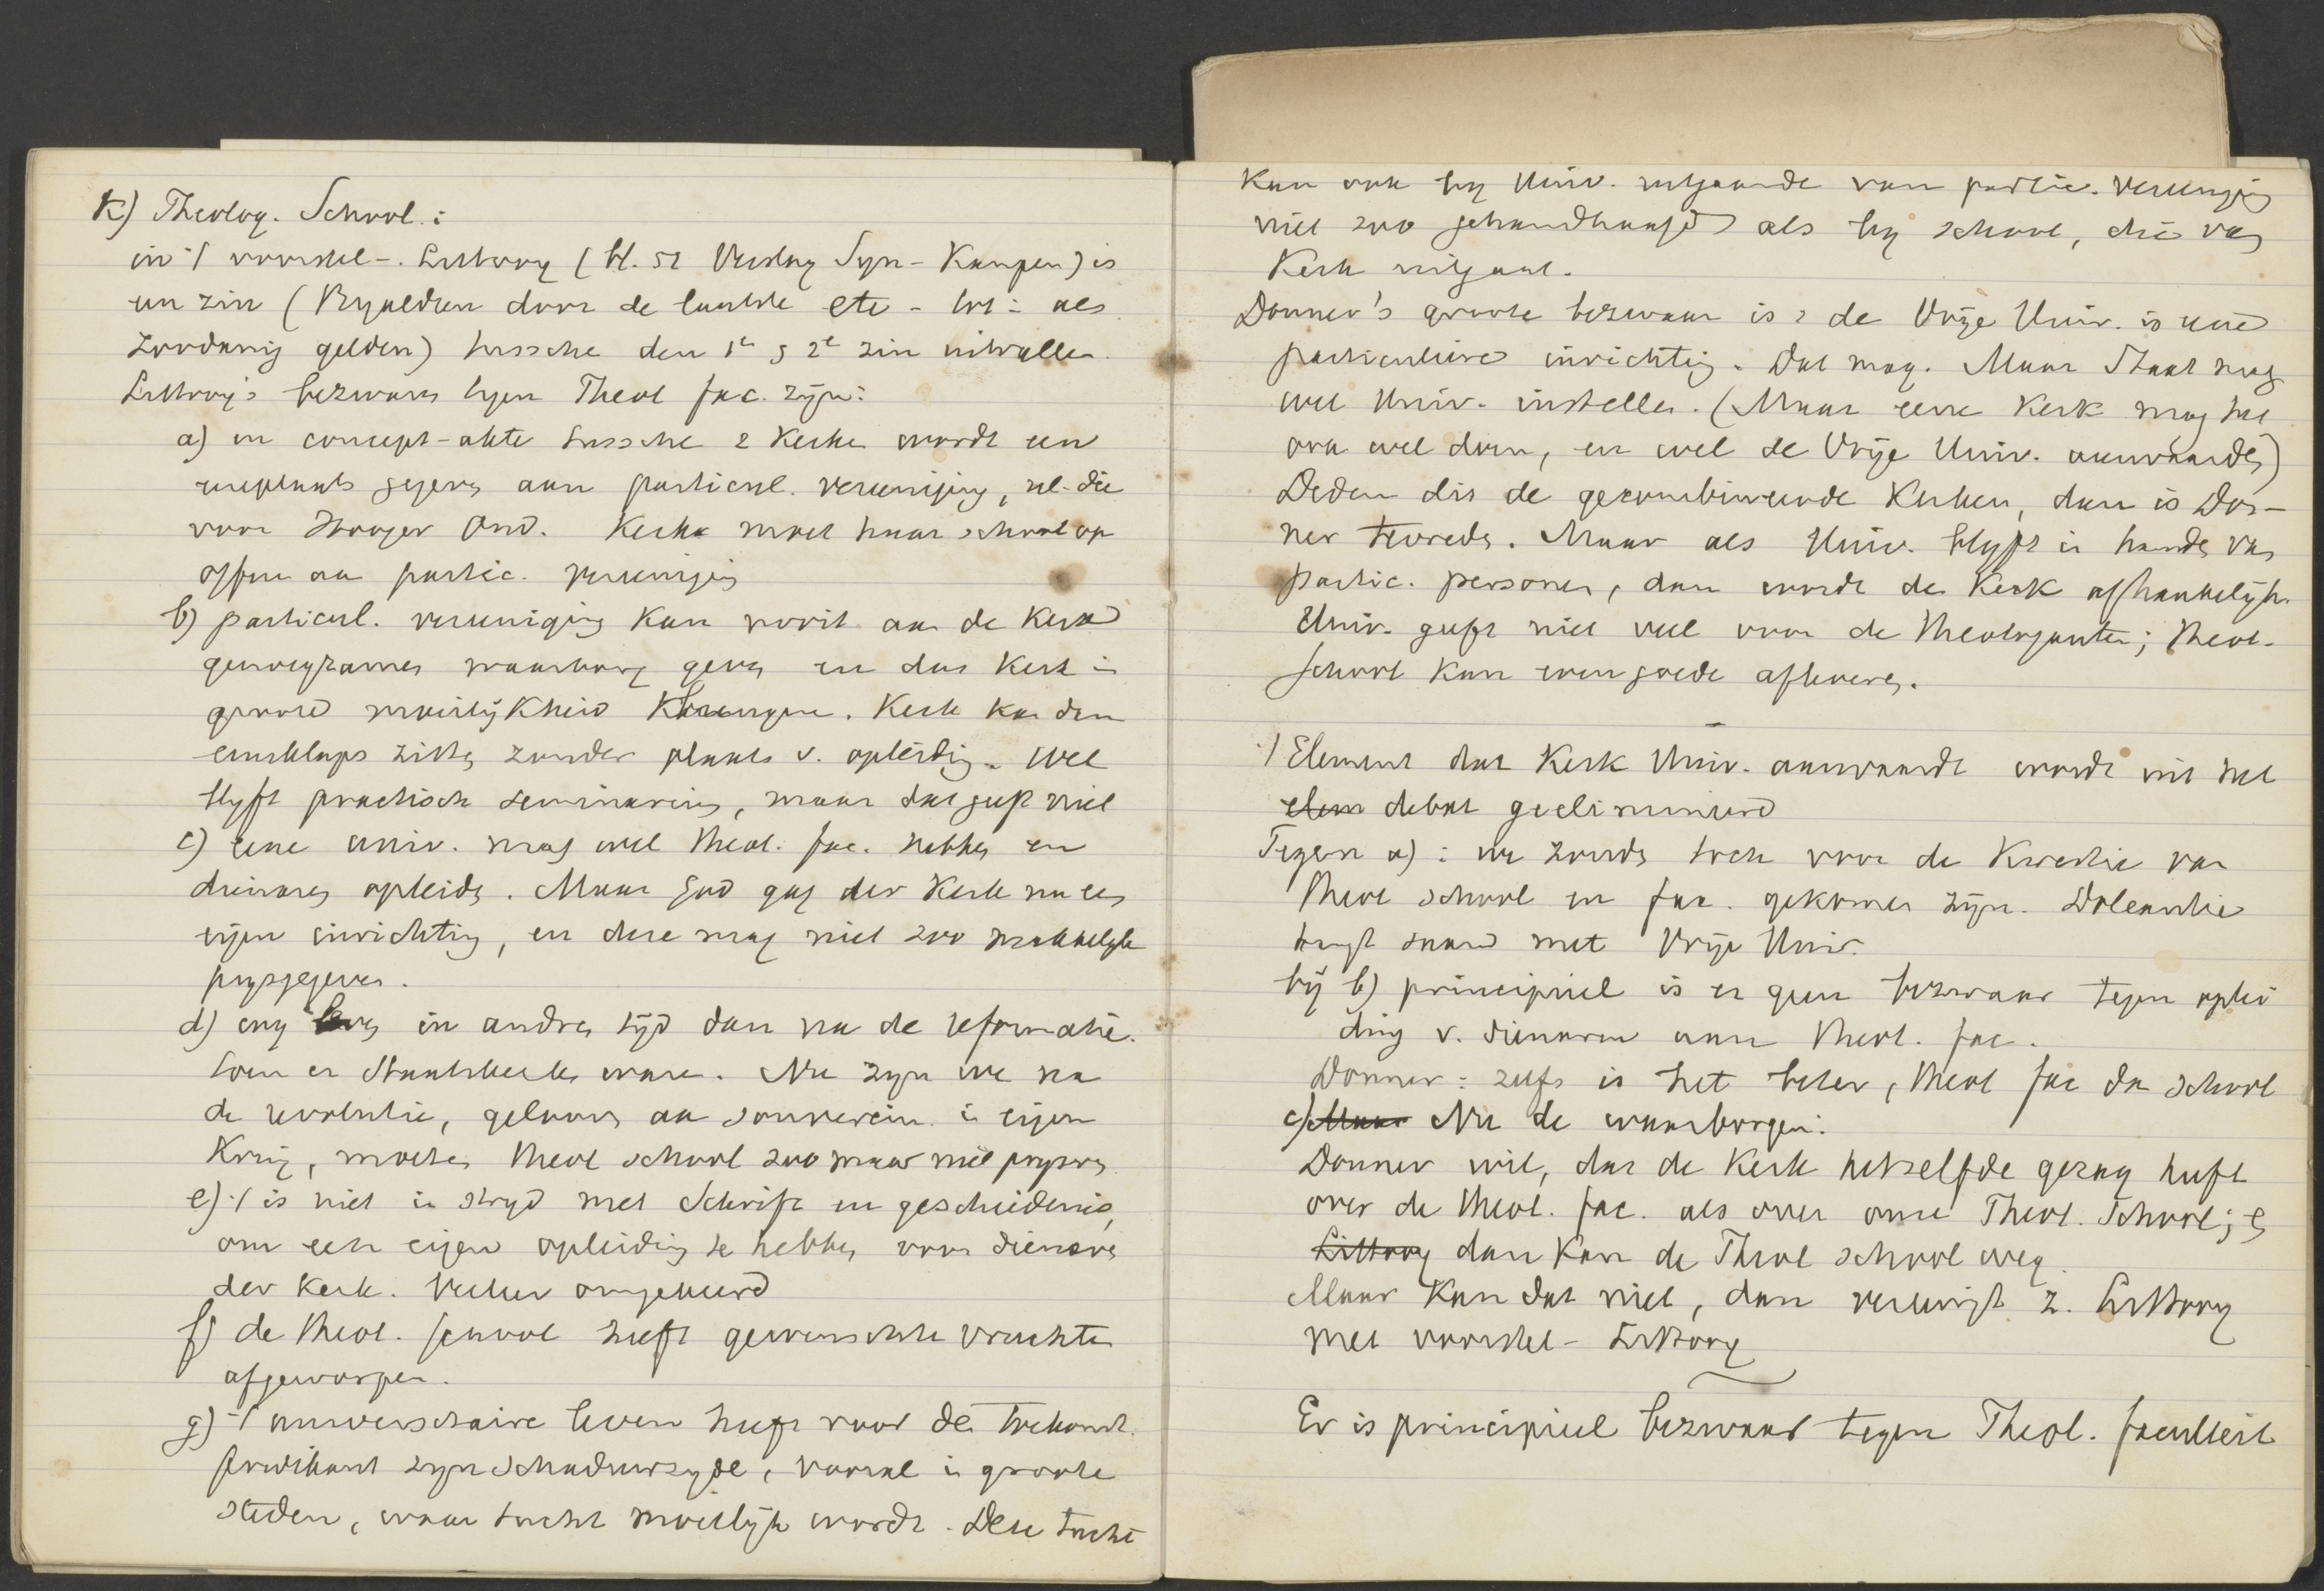 K) Theolog. School:
in 't voorstel-Littooy (bl. 52 Verslag Syn-Kampen) is
een zin (Bijaldien door de laatste etc - tot: als
zoodanig gelden) tussche den 1e & 2e zin uitvallen.
Littooy's bezwaren tegen Theol fac. zijn:
a) in concept-akte tussche 2 Kerken wordt een
ereplaats gegeven aan particul. vereeniging, nl. die
voor Hooger Ond. Kerk moet haar school op
offren aan partic. vereeniging
b) particul. vereeniging kan nooit aan de Kerk
genoegzamen waarborg geven en dus Kerk in
groote moeilijkheid brengen. Kerk kan dan
eensklaps zitten zonder plaats v. opleiding. Wel
blyft practisch seminarium, maar dat geeft niet
c) eene univ. mag wel theol. fac. hebben en
dienaren opleiden. Maar God gaf der Kerk nu een
eigen inrichting, en deze mag niet zoo makkelyk
prysgegeven.
d) wy leven in andren tyd dan na de reformatie.
toen er Staatskerken ware. Nu zyn we na
de revolutie, gelooven aan souverein. in eigen
Kring, moeten theol school zoo maar niet prysgeven
e) 't is niet in stryd met Schrift en geschiedenis,
om een eigen opleiding te hebben voor dienaren
der Kerk. Veeleer omgekeerd
f) de theol. school heeft gewenschte vruchten
afgeworpen.
g) 't universitaire leven heeft voor de toekomst.
predikant zyn schaduwzyde, vooral in groote
steden, waar tucht moeilyk wordt. Deze tucht
Kan ook by Univ. uitgaande van partic. vereeniging
niet zoo gehandhaafd als by school, die van
Kerk uitgaat.
Donner's groote bezwaar is: de Vrije Univ. is eene
particuliere inrichting. Dat mag. Maar Staat mag
wel Univ. instellen. (Maar eene Kerk mag het
ook wel doen, en wel de Vrije Univ. aanvaarden)
Deden dit de gecombineerde Kerken, dan is Don-
ner tevreden. Maar als Univ. blyft in handen van
partic. personen, dan wordt de Kerk afhankelijk.
Univ. geeft niet veel voor de theologanten; theol.
school kan even goede afleveren.
't Element dat Kerk Univ. aanvaardt wordt uit het
elem debat geelimineerd
Tegen a): we zouden toch voor de Kwestie van
theol school en fac. gekomen zijn. Doleantie
hangt saam met Vrije Univ.
bij b) principieel is er geen bezwaar tegen oplei
ding v. dienaren aan theol. fac.
Donner: zelfs is het beter, theol fac dan school
c) Maar Nu de waarborgen:
Donner wil, dat de Kerk hetzelfde gezag heeft
over de theol. fac. als over onze Theol. School; en
Littooy dan kan de Theol school weg.
Maar kan dat niet, dan vereenigt z. Littooy
met voorstel-Littooy
Er is principieel bezwaar tegen Theol. faculteit